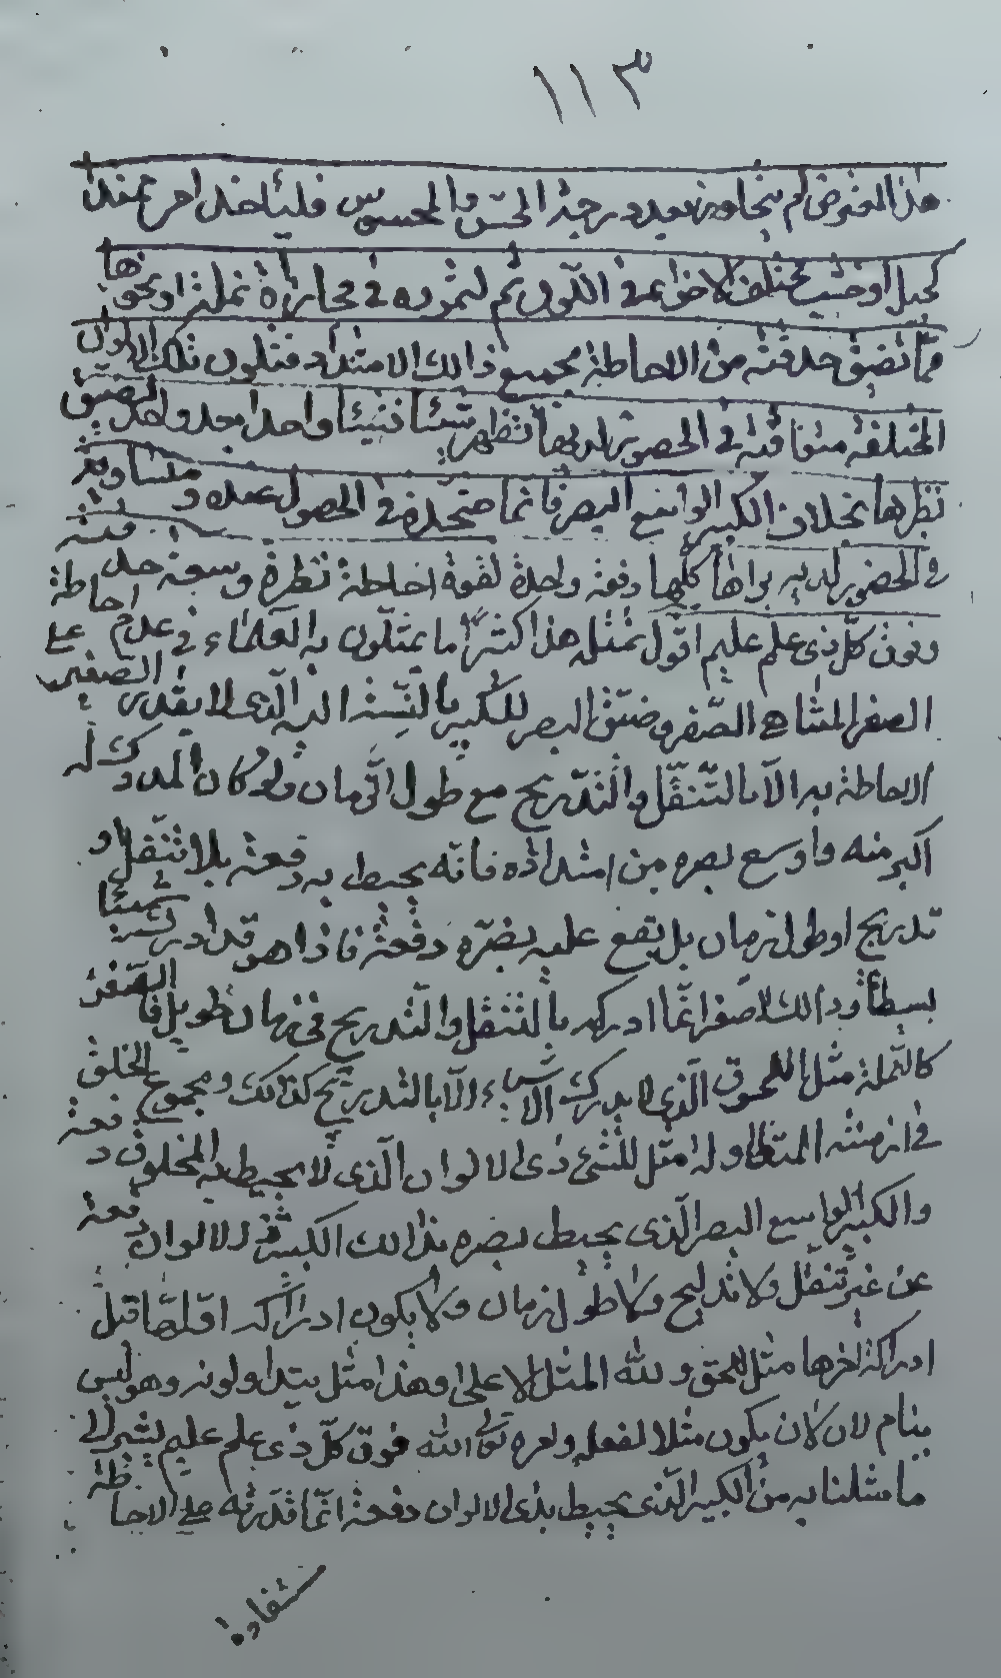 ١١٣
هذا المعترض لم يتجاوز بعد درجة الحس والمحسوس فليأخذ امر ممتد
كحبل او خشب مختلف الاجزاء في اللون ثم ليمرره في محاذاة نملة او نحوها
مما تضيق حدقته عن الاحاطة بجميع ذلك الامتداد فتكون تلك الالوان
المختلفة متعاقبة في الحضور لديها تظهر شيئا فشيئا واحدا بعد واحد لضيق
نظرها بخلاف الكبير الواسع البصر فانها متحدة في الحصول عنده ومتساوية
في الحضور لديه يراها كلها دفعة واحدة لقوة احاطة نظره وسعة حدقته
وفوق كل ذي علم عليم اقول تمثله هذا كثيرا ما يمثلون به العلماء في عدم احاطة علم
الصغير المتناهي الصغر وضيق البصر للكبير بالنسبة اليه الذي لا يقدر الصغير على
الاحاطة به الا بالتنقل والتدريج مع طول الزمان ولو كان المدرك له
اكبر منه واوسع بصره من امتداده فانه يحيط به دفعة بلا تنقل او
تدريج او طول زمان بل يقع عليه بصره دفعة فاذا هو قد ادركه شيئا
بسيطا وذلك الاصغر انما ادركه بالتنقل والتدريج في زمان طويل فالصغير
كالنملة مثل للمخلوق الذي لا يدرك الاشياء الا بالتدريج كذلك ومجموع الخلق
في ازمنته المتطاولة مثل للشيء ذي الالوان الذي لا يحيط به المخلوق دفعة
والكبير الواسع البصر الذي يحيط بصره بذلك الكثير الالوان دفعة
من غير تنقل ولا تدريج ولا طول زمان ولا يكون ادراكه اولها قبل
ادراك اخرها مثل للحق ولله المثل الاعلى وهذا مثل يتداولونه وهو ليس
بتام لان كان يكون مثلا لفعله وامره تعالى الله فوق كل ذي علم عليم يشير الى
ما مثلنا به من الكبير الذي يحيط بذي الالوان دفعة انما قدرته على الاحاطة